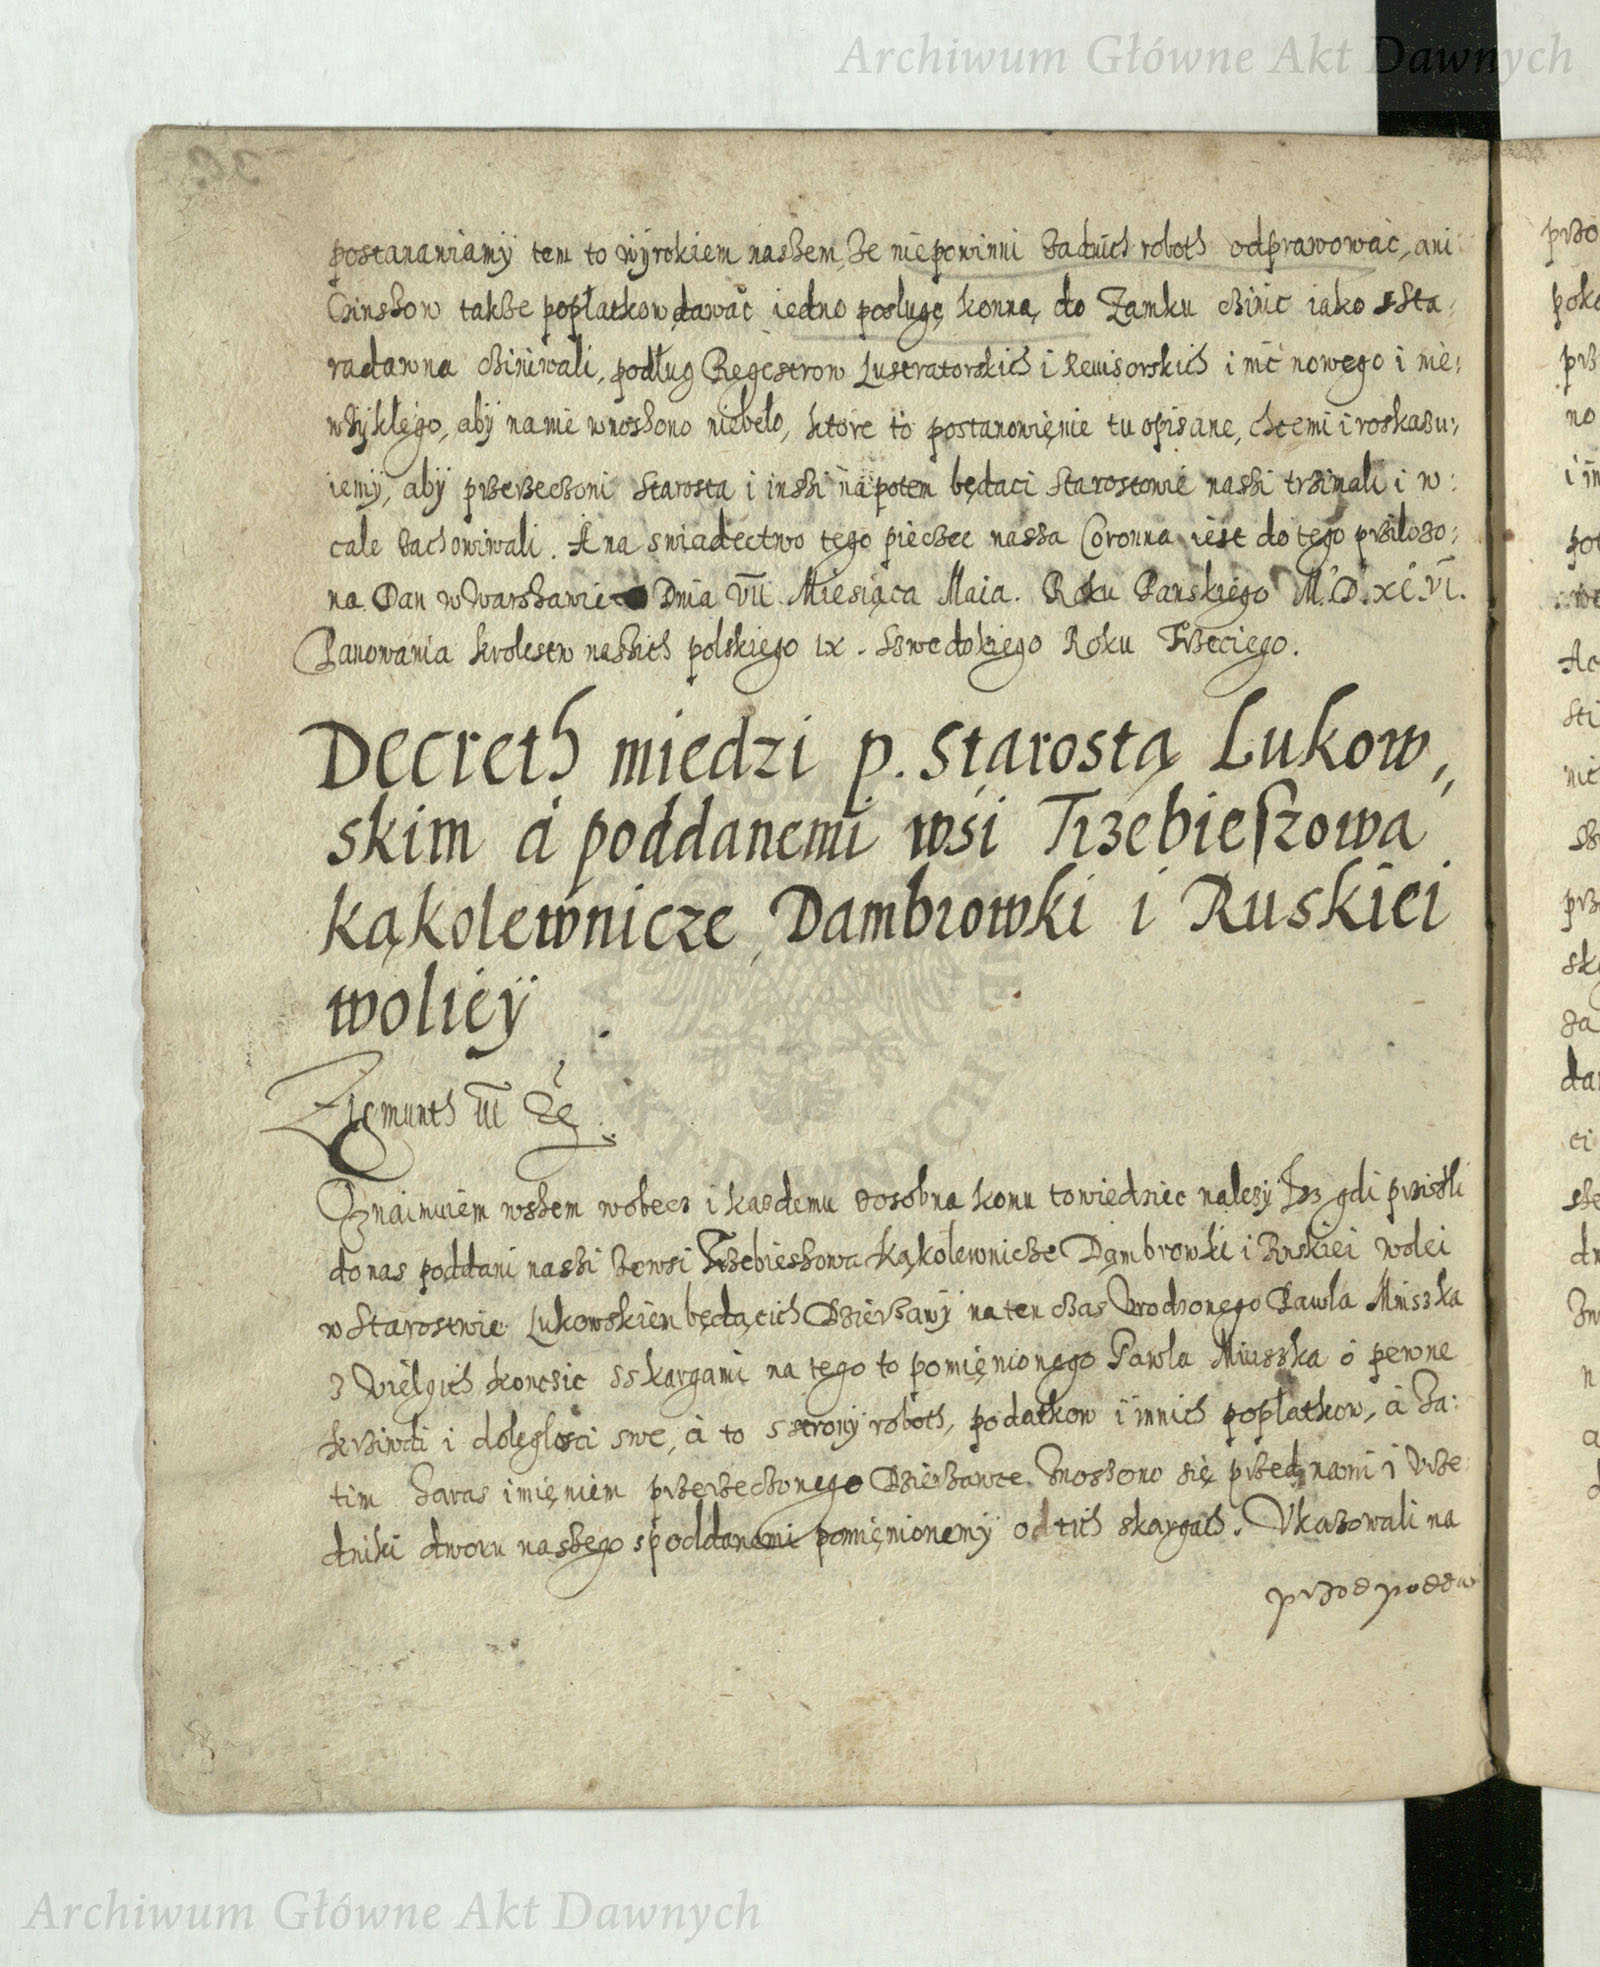 Archiwum Główne Akt Dawnych
postanawiamÿ tem to wÿrokiem naszem, że niepowinni żadnich roboth odprawować, ani
Czinszow także popłatkow dawać iedno posługę konną do Zamku czinić iako sSta:
radawna cziniwali, podług Regestrow Lustratorskich i Rewisorskich i nic nowego i nie:
wżykłego, abÿ na nie wnoszono niebeło, które to postanowięnie tu opisane, chcemi i roskazu:
iemÿ, abÿ przerzeczoni Starosta i inszi napotem będaci Starostowie naszi trzimali i w:
cale zachowiwali. A na swiadectwo tego piećzec nasza Coronna iest do tego przilozo:
na Dan w Warszawie Dnia VII Miesiąca Maia. Roku Panskiego M.D.XC.VI.
Panowania krolestw naszich polskiego IX. Szwedzkiego Roku Trzeciego.
Decreth miedzi p. Starostą Lukow,,
skim á poddanemi wśi Trzebieszowa
kąkolewnicze, Dambrowki i Ruskiei
wolicÿ
Zigmunth III
Oznaimuiem wszem wobecz i kazdemu zosobna komu towiedziec nalezÿ Isz gdi prziszli
do nas poddani naszi zewsi Trzebieszowa Kąkolewnicze Dąmbrowki i Ruskiei wolei
w Starostwie Lukowskiem będącich Dzierżawÿ na ten czas Urodzonego Pawła Mniszka
z wielgich koncsic sskargami na tego to pomięnionego Pawla Mniszka o pewne
krziwdi i doleglosci swe, á to sstronÿ roboth, podatkow i innich popłatkow, á Za:
tim Zaras imięniem przerzeczonego Dzierżawce Wnoszono się przed nami i Vrze
dniki dworu naszego spoddanemi pomięnionemÿ o d tich skargach. Vkazowali na
przod podda
Archiwum Główne Akt Dawnych